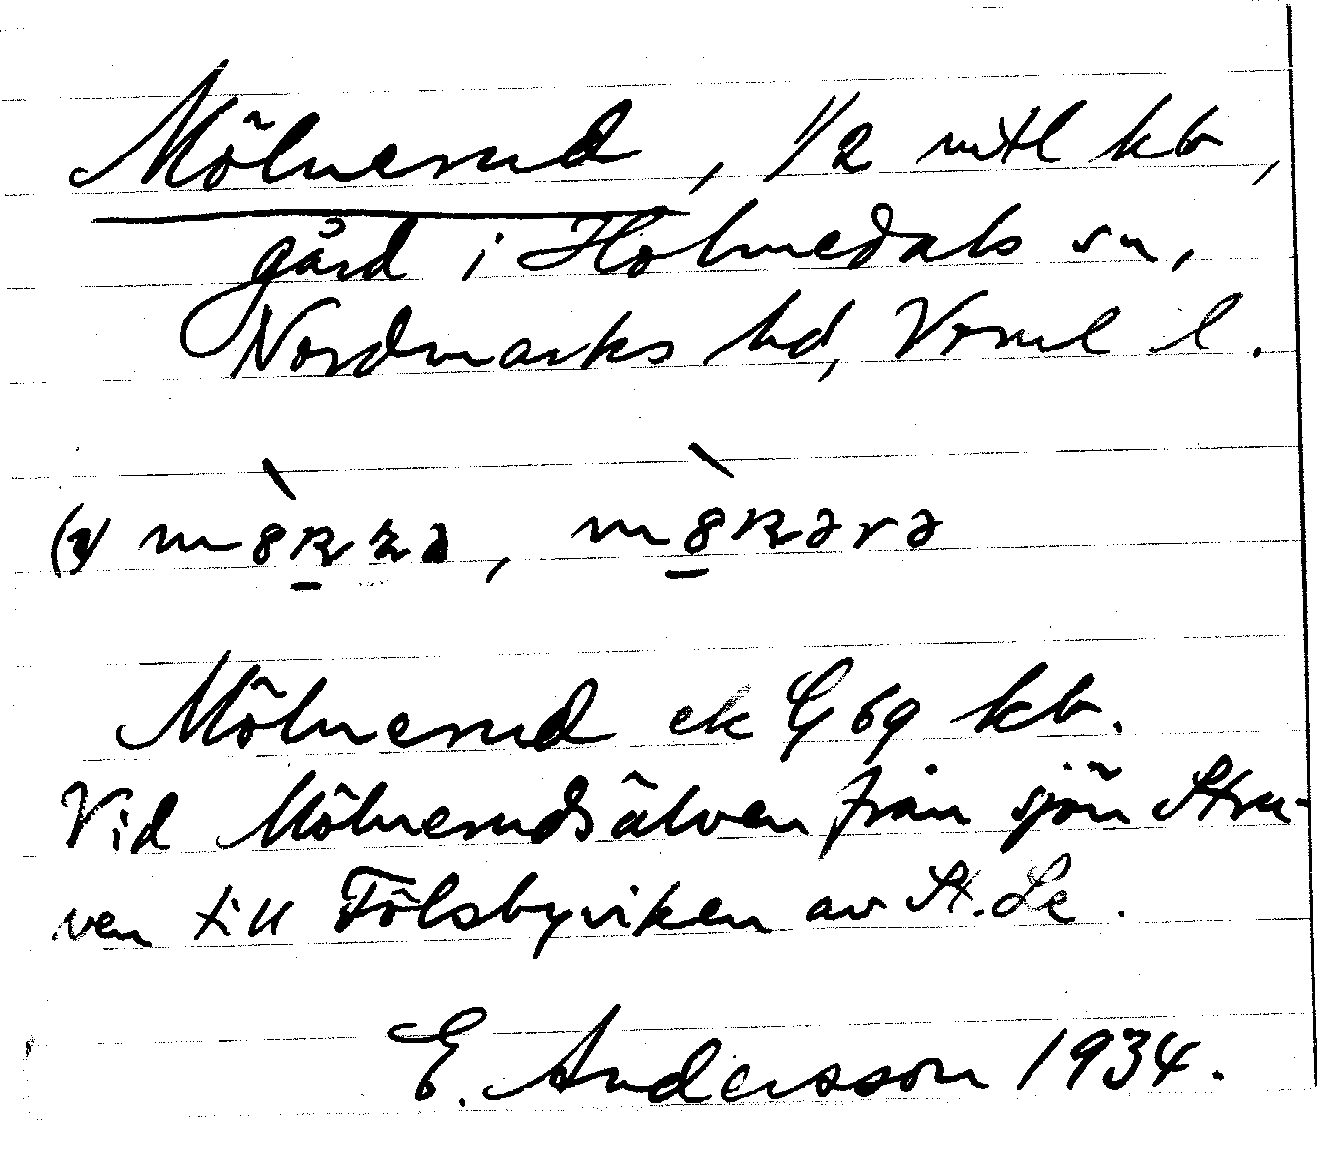 Mölnerud, 1/2 mtl kb,
gård i Holmedals sn,
Nordmarks hd, Vrml l.
Mölnerud ek G 69 kb.
Vid Mölnerudsälven från sjön Stru-
ven till Fölsbyviken av St. Le.
E. Andersson 1934.